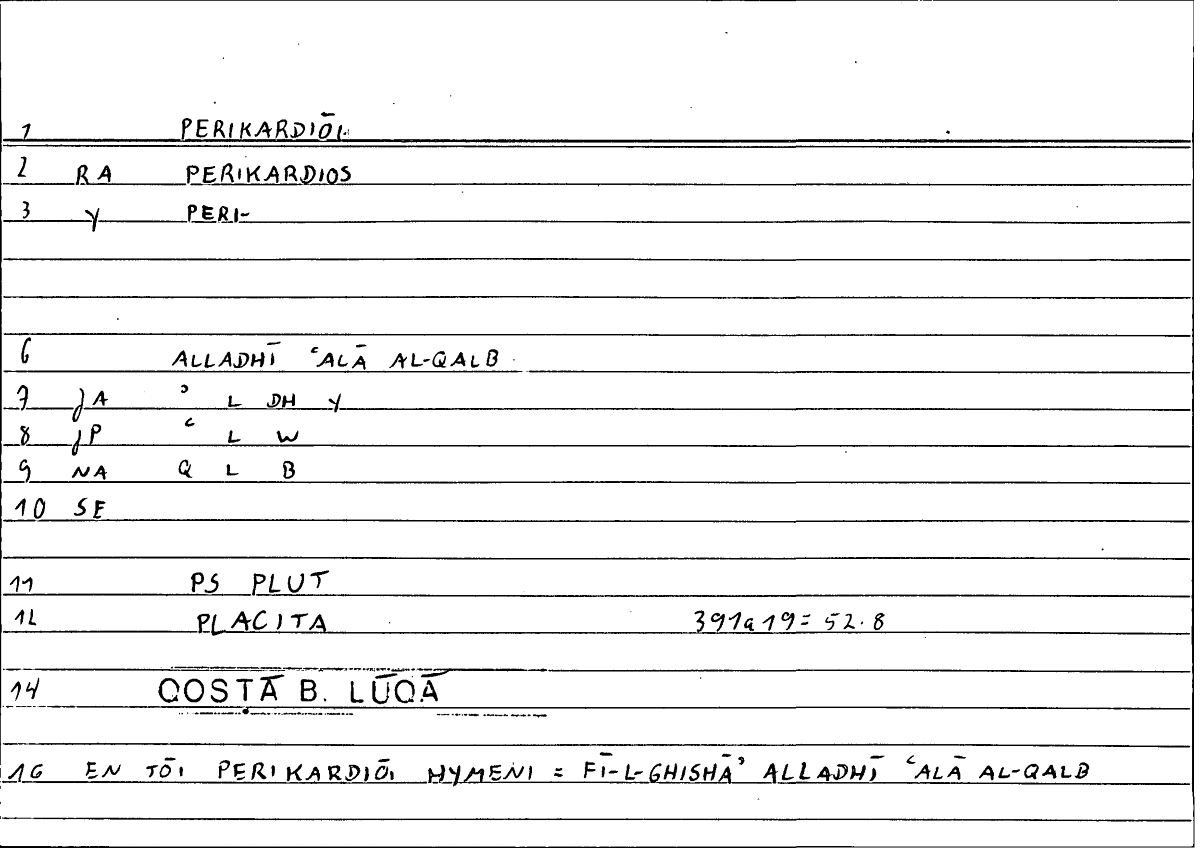 1 PERIKARDIŌI
2 RA PERIKARDIOS
3 Y PERI-
6 ALLADHĪ ʿALĀ AL-QALB
7 JA ʾ L DH Y
8 JP ʿ L W
9 NA Q L B
10 SE
11 PS PLUT
12 PLACITA 391a19 = 52.8
14 QOSṬĀ B. LŪQĀ
16 EN TŌI PERIKARDIŌI HYMENI = FĪ-L-GHISHĀʾ ALLADHĪ ʿALĀ AL-QALB